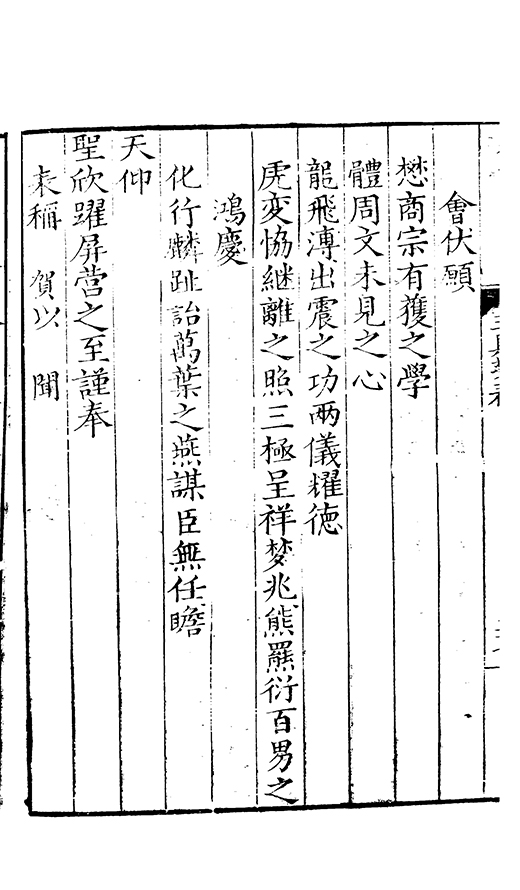 會伏願
懋商宗有獲之學
體周文未見之心
龍飛溥出震之功兩儀耀德
虎変恊継離之照三極呈祥梦兆熊羆衍百男之
鴻慶
化行麟趾詒萬葉之燕謀臣無任瞻
天仰
聖欣躍屏营之至謹奉
表稱賀以聞